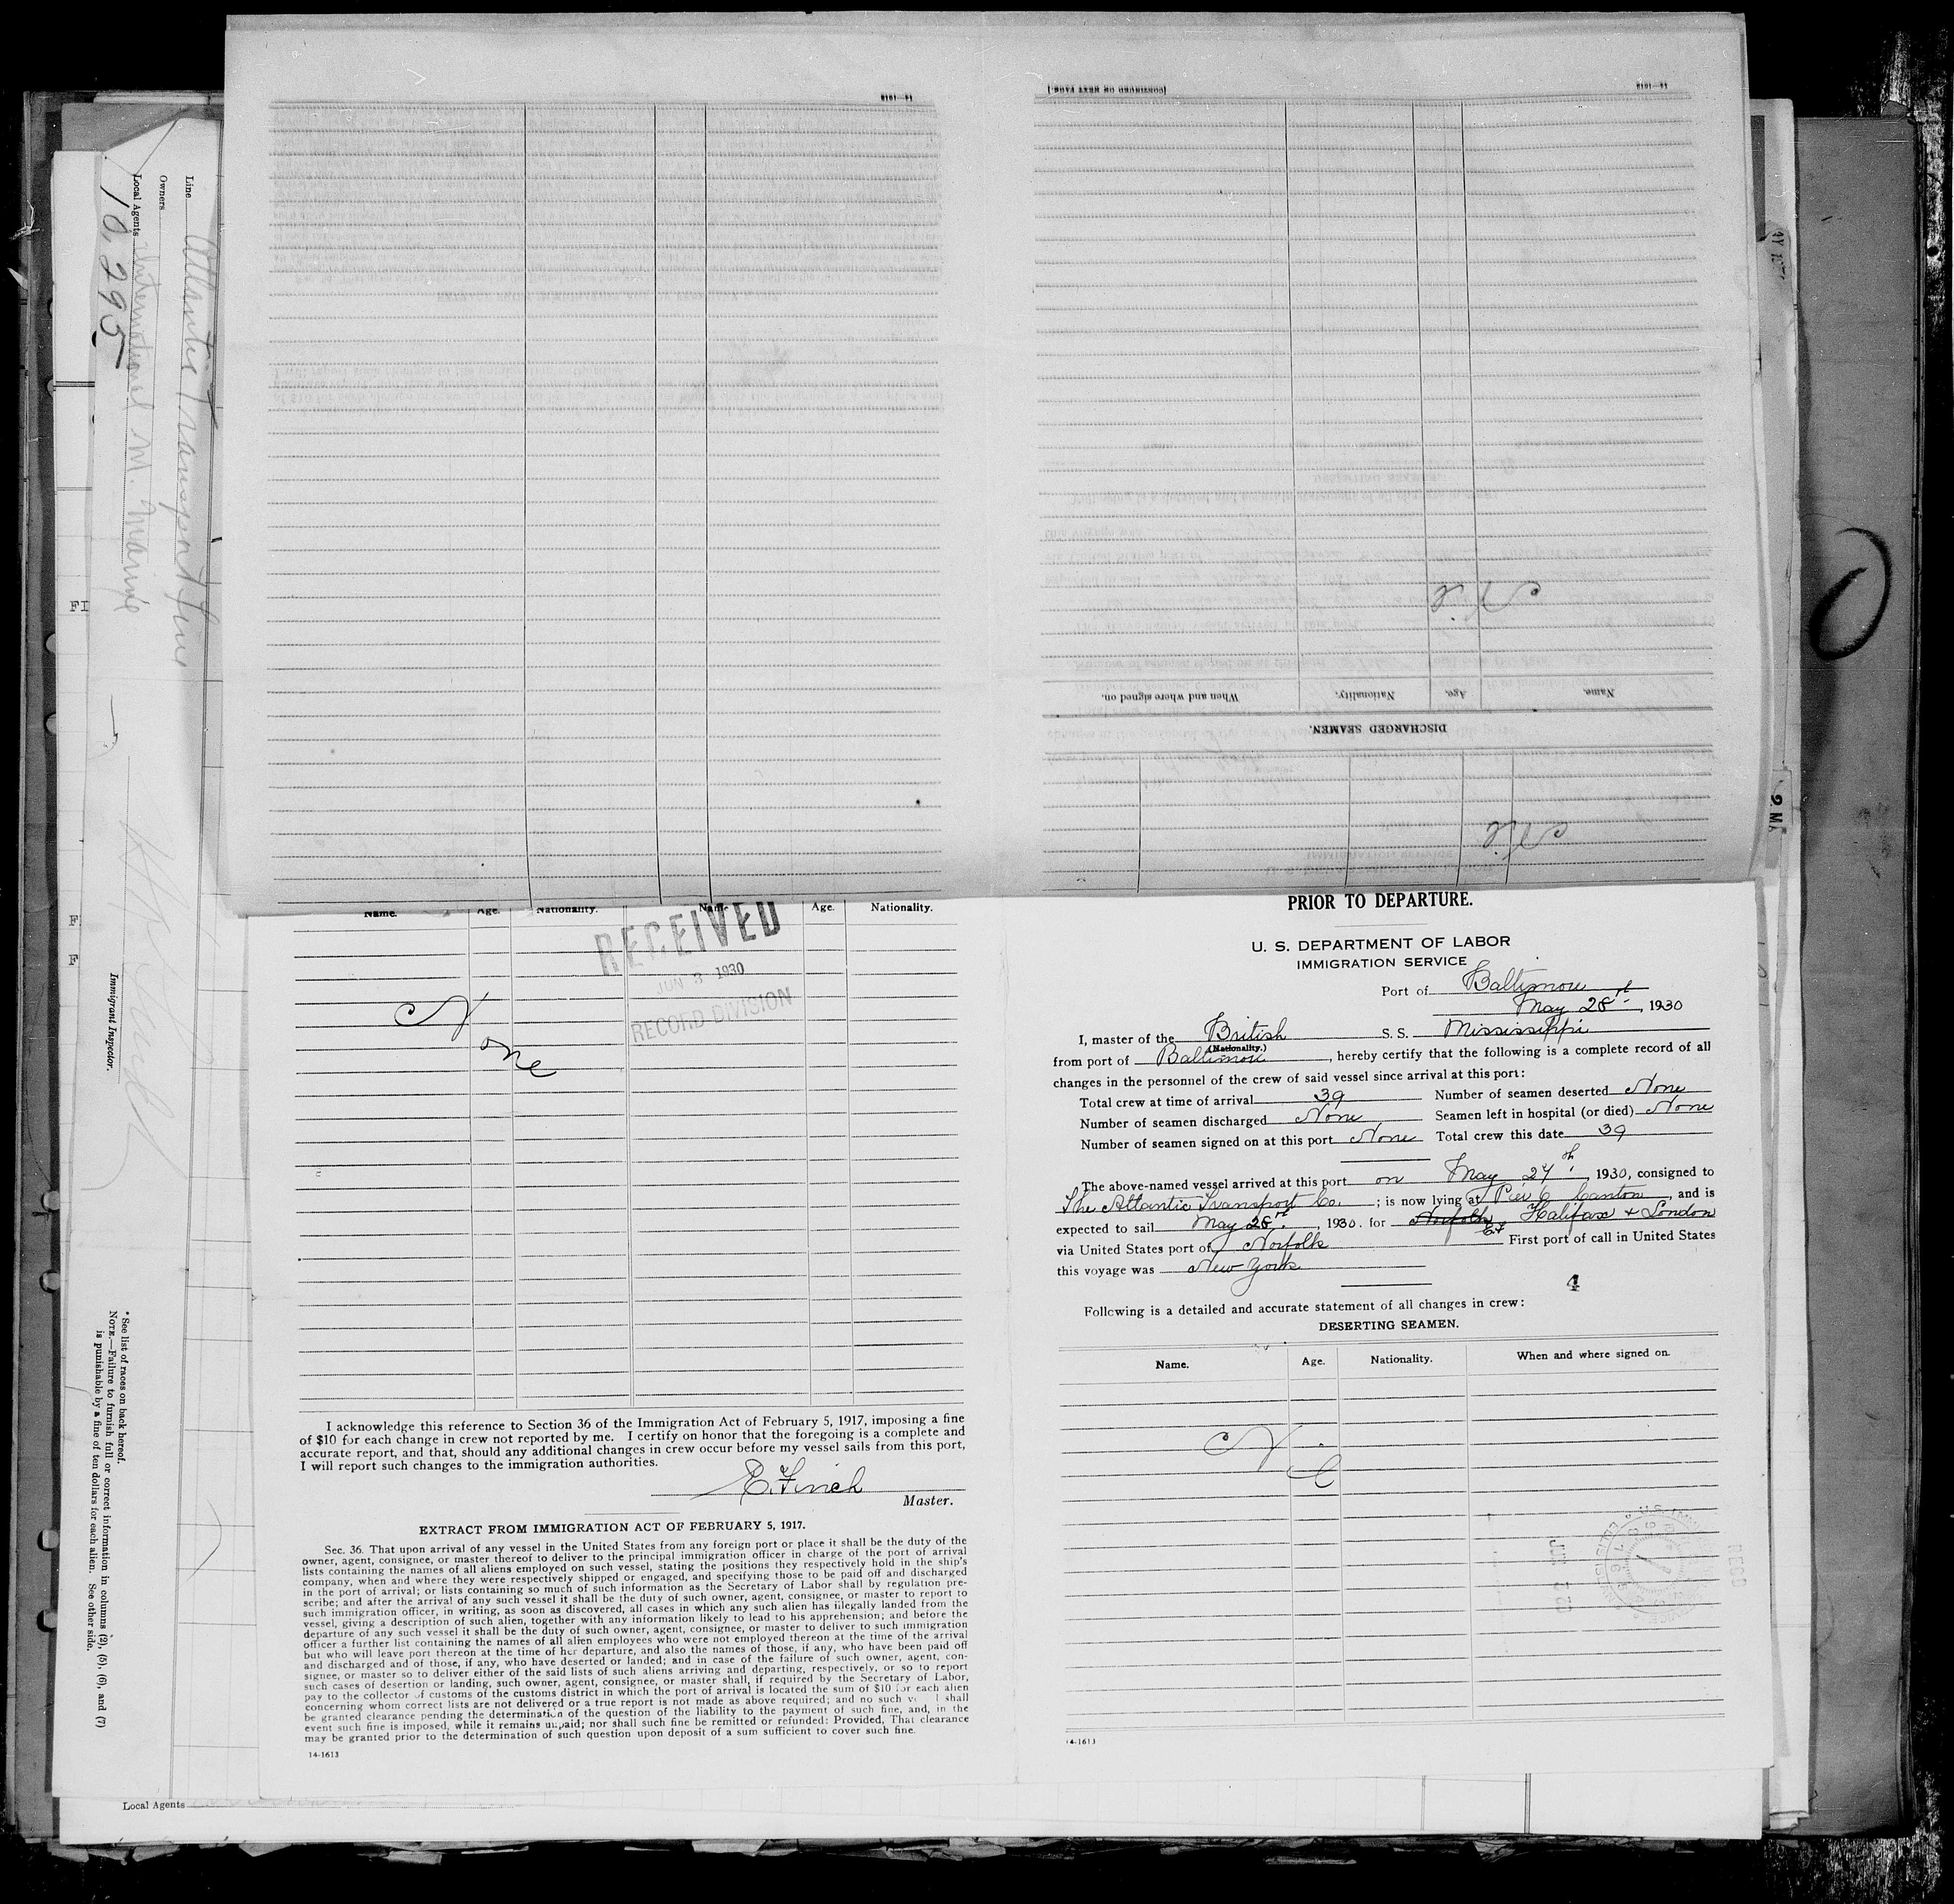 Line Atlantic Transport Line
Owners
Local Agents International M. Marine
10,295
Immigrant Inspector.
*See list of races on back hereof.
NOTE.—Failure to furnish full or correct information in columns (2), (5), (6), and (7)
is punishable by a fine of ten dollars for each alien. See other side.
Local Agents
[CONTINUED ON NEXT PAGE.]
DISCHARGED SEAMEN.
Name. Age. Nationality. When and where signed on.
Name. Age. Nationality. Name. Age. Nationality.
RECEIVED
JUN 3 1930
RECORD DIVISION
None
I acknowledge this reference to Section 36 of the Immigration Act of February 5, 1917, imposing a fine
of $10 for each change in crew not reported by me. I certify on honor that the foregoing is a complete and
accurate report, and that, should any additional changes in crew occur before my vessel sails from this port,
I will report such changes to the immigration authorities.
E. Finch
Master.
EXTRACT FROM IMMIGRATION ACT OF FEBRUARY 5, 1917.
Sec. 36. That upon arrival of any vessel in the United States from any foreign port or place it shall be the duty of the
owner, agent, consignee, or master thereof to deliver to the principal immigration officer in charge of the port of arrival
lists containing the names of all aliens employed on such vessel, stating the positions they respectively hold in the ship's
company, when and where they were respectively shipped or engaged, and specifying those to be paid off and discharged
in the port of arrival; or lists containing so much of such information as the Secretary of Labor shall by regulation pre-
scribe; and after the arrival of any such vessel it shall be the duty of such owner, agent, consignee, or master to report to
such immigration officer, in writing, as soon as discovered, all cases in which any such alien has illegally landed from the
vessel, giving a description of such alien, together with any information likely to lead to his apprehension; and before the
departure of any such vessel it shall be the duty of such owner, agent, consignee, or master to deliver to such immigration
officer a further list containing the names of all alien employees who were not employed thereon at the time of the arrival
but who will leave port thereon at the time of her departure, and also the names of those, if any, who have been paid off
and discharged and of those, if any, who have deserted or landed; and in case of the failure of such owner, agent, con-
signee, or master so to deliver either of the said lists of such aliens arriving and departing, respectively, or so to report
such cases of desertion or landing, such owner, agent, consignee, or master shall, if required by the Secretary of Labor,
pay to the collector of customs of the customs district in which the port of arrival is located the sum of $10 for each alien
concerning whom correct lists are not delivered or a true report is not made as above required; and no such ve l shall
be granted clearance pending the determination of the question of the liability to the payment of such fine, and, in the
event such fine is imposed, while it remains unpaid; nor shall such fine be remitted or refunded: Provided, That clearance
may be granted prior to the determination of such question upon deposit of a sum sufficient to cover such fine.
14-1613
PRIOR TO DEPARTURE.
U. S. DEPARTMENT OF LABOR
IMMIGRATION SERVICE
Port of Baltimore
May 28th, 1930
I, master of the British S. S. Mississippi
(Nationality.)
from port of Baltimore, hereby certify that the following is a complete record of all
changes in the personnel of the crew of said vessel since arrival at this port:
Total crew at time of arrival 39 Number of seamen deserted None
Number of seamen discharged None Seamen left in hospital (or died) None
Number of seamen signed on at this port None Total crew this date 39
The above-named vessel arrived at this port on May 27th, 1930, consigned to
The Atlantic Transport Co. ; is now lying at Pier 6 Canton, and is
expected to sail May 28th, 1930. for Norfolk E.F. Halifax + London
via United States port of Norfolk First port of call in United States
this voyage was New York
4
Following is a detailed and accurate statement of all changes in crew:
DESERTING SEAMEN.
Name. Age. Nationality. When and where signed on.
14-1613